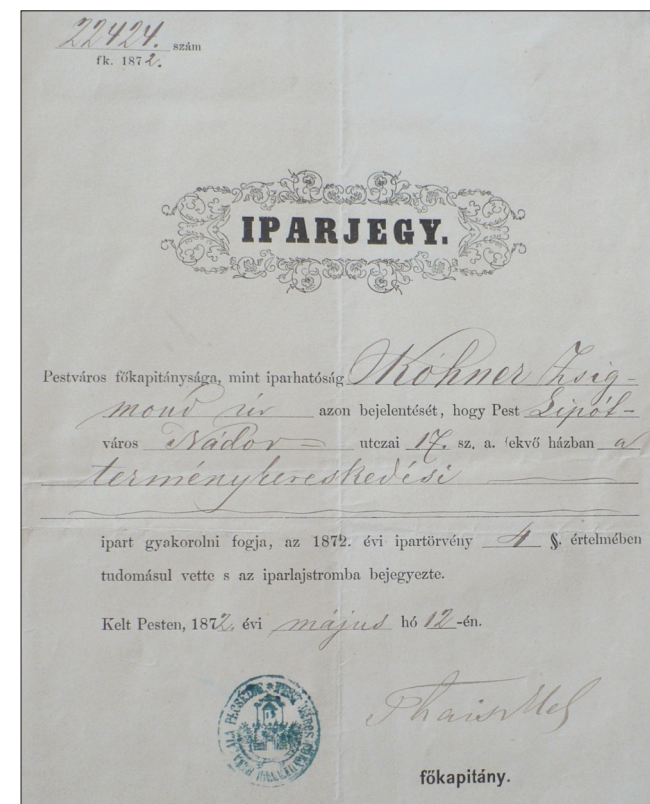 22424. szám
fk. 1872.
IPARJEGY.
Pestváros főkapitánysága, mint iparhatóság Kohner Zsig-
mond úr azon bejelentését, hogy Pest Lipót-
város Nádor utczai 17. sz. a. fekvő házban a
terménykereskedési
ipart gyakorolni fogja, az 1872. évi ipartörvény 4 §. értelmében
tudomásul vette s az iparlajstromba bejegyezte.
Kelt Pesten, 1872. évi május hó 12-én.
Thaisz
főkapitány.